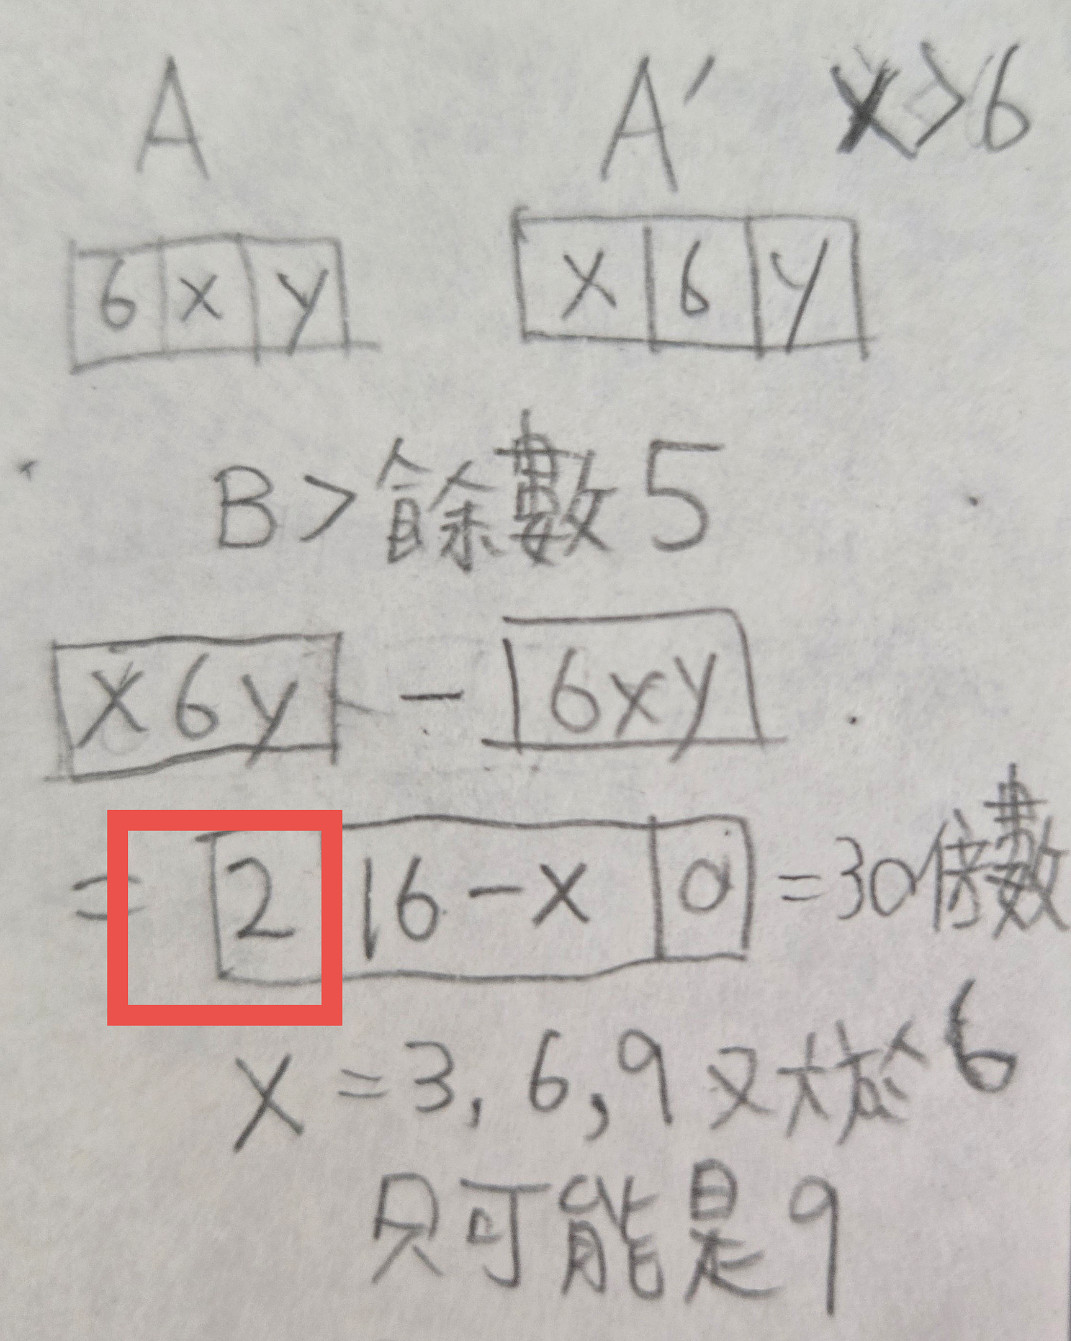 A A′ x>6
6 x y x 6 y
B>餘數5
x6y − 6xy
= 2 16−x 0 =30倍數
x=3,6,9又大於6
只可能是9